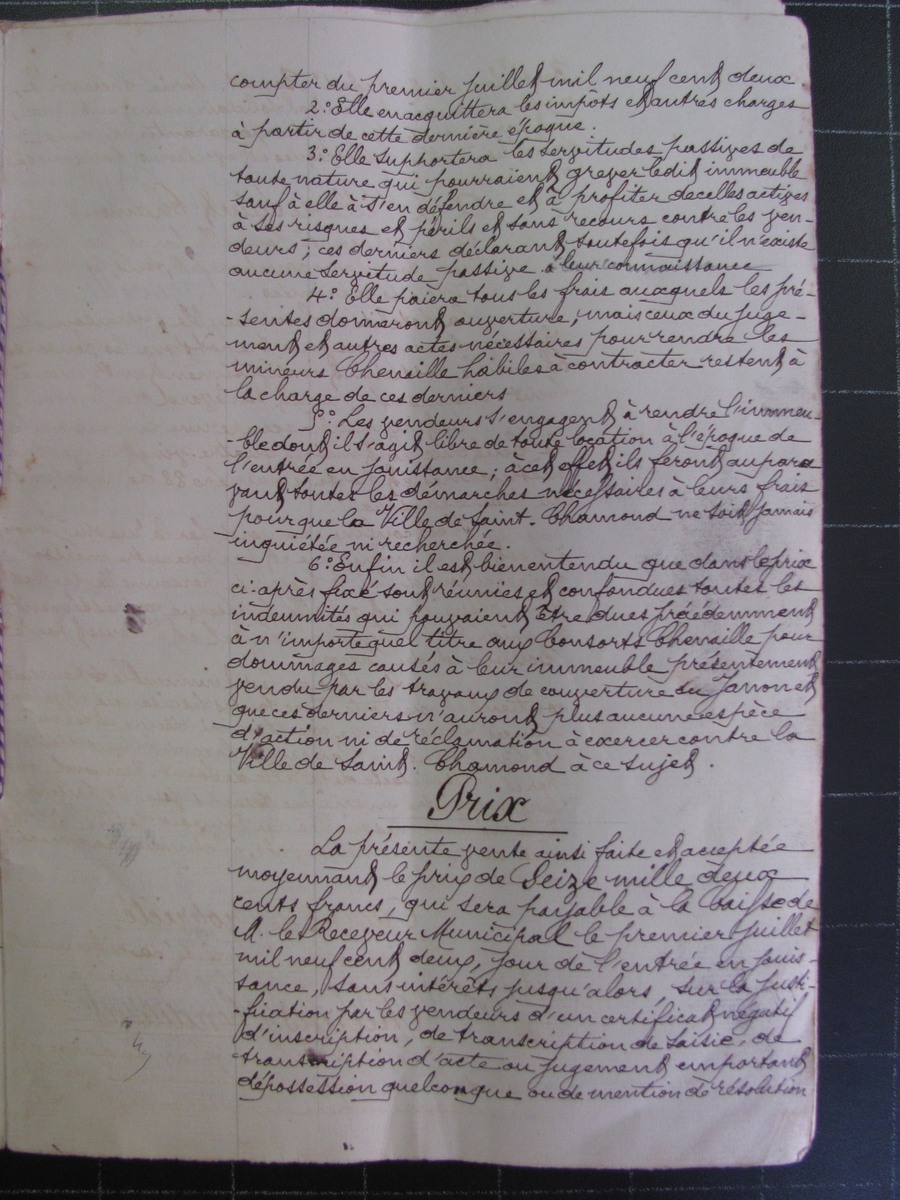 compter du premier juillet mil neuf cent deux.
2º: Elle en acquittera les impôts et autres charges
à partir de cette dernière époque.
3º: Elle supportera les servitudes passives de
toute nature qui pourraient grever ledit immeuble
sauf à elle à s'en défendre et à profiter de celles actives
à ses risques et périls et sans recours contre les ven-
deurs; ces derniers déclarant toutefois qu'il n'existe
aucune servitude passive à leur connaissance
4º: Elle paiera tous les frais auxquels les pré-
-sentes donneront ouverture, mais ceux du juge-
ment et autres actes nécessaires pour rendre les
mineurs Chenaille habiles à contracter restent à
la charge de ces derniers
5º: Les vendeurs s'engagent à rendre l'immeu-
-ble dont il s'agit libre de toute location à l'époque de
l'entrée en jouissance; à cet effet ils feront aupara
vant toutes les démarches nécessaires à leurs frais
pour que la Ville de Saint-Chamond ne soit jamais
inquiétée ni recherchée.
6º: Enfin il est bien entendu que dans le prix
ci-après fixé sont réunies et confondues toutes les
indemnités qui pouvaient être dues précédemment
à n'importe quel titre aux Consorts Chenaille pour
dommages causés à leur immeuble présentement
vendu par les travaux de couverture du Janon et
que ces derniers n'auront plus aucune espèce
d'action ni de réclamation à exercer contre la
Ville de Saint-Chamond à ce sujet.
Prix
La présente vente ainsi faite et acceptée
moyennant le prix de Seize mille deux
cents francs, qui sera payable à la Caisse de
M. le Receveur Municipal le premier juillet
mil neuf cent deux, jour de l'entrée en jouis-
sance, sans intérêts jusqu'alors, sur la justi-
-fication par les vendeurs d'un certificat négatif
d'inscription, de transcription de saisie, de
transcription d'acte ou jugement emportant
dépossession quelconque ou de mention de résolution